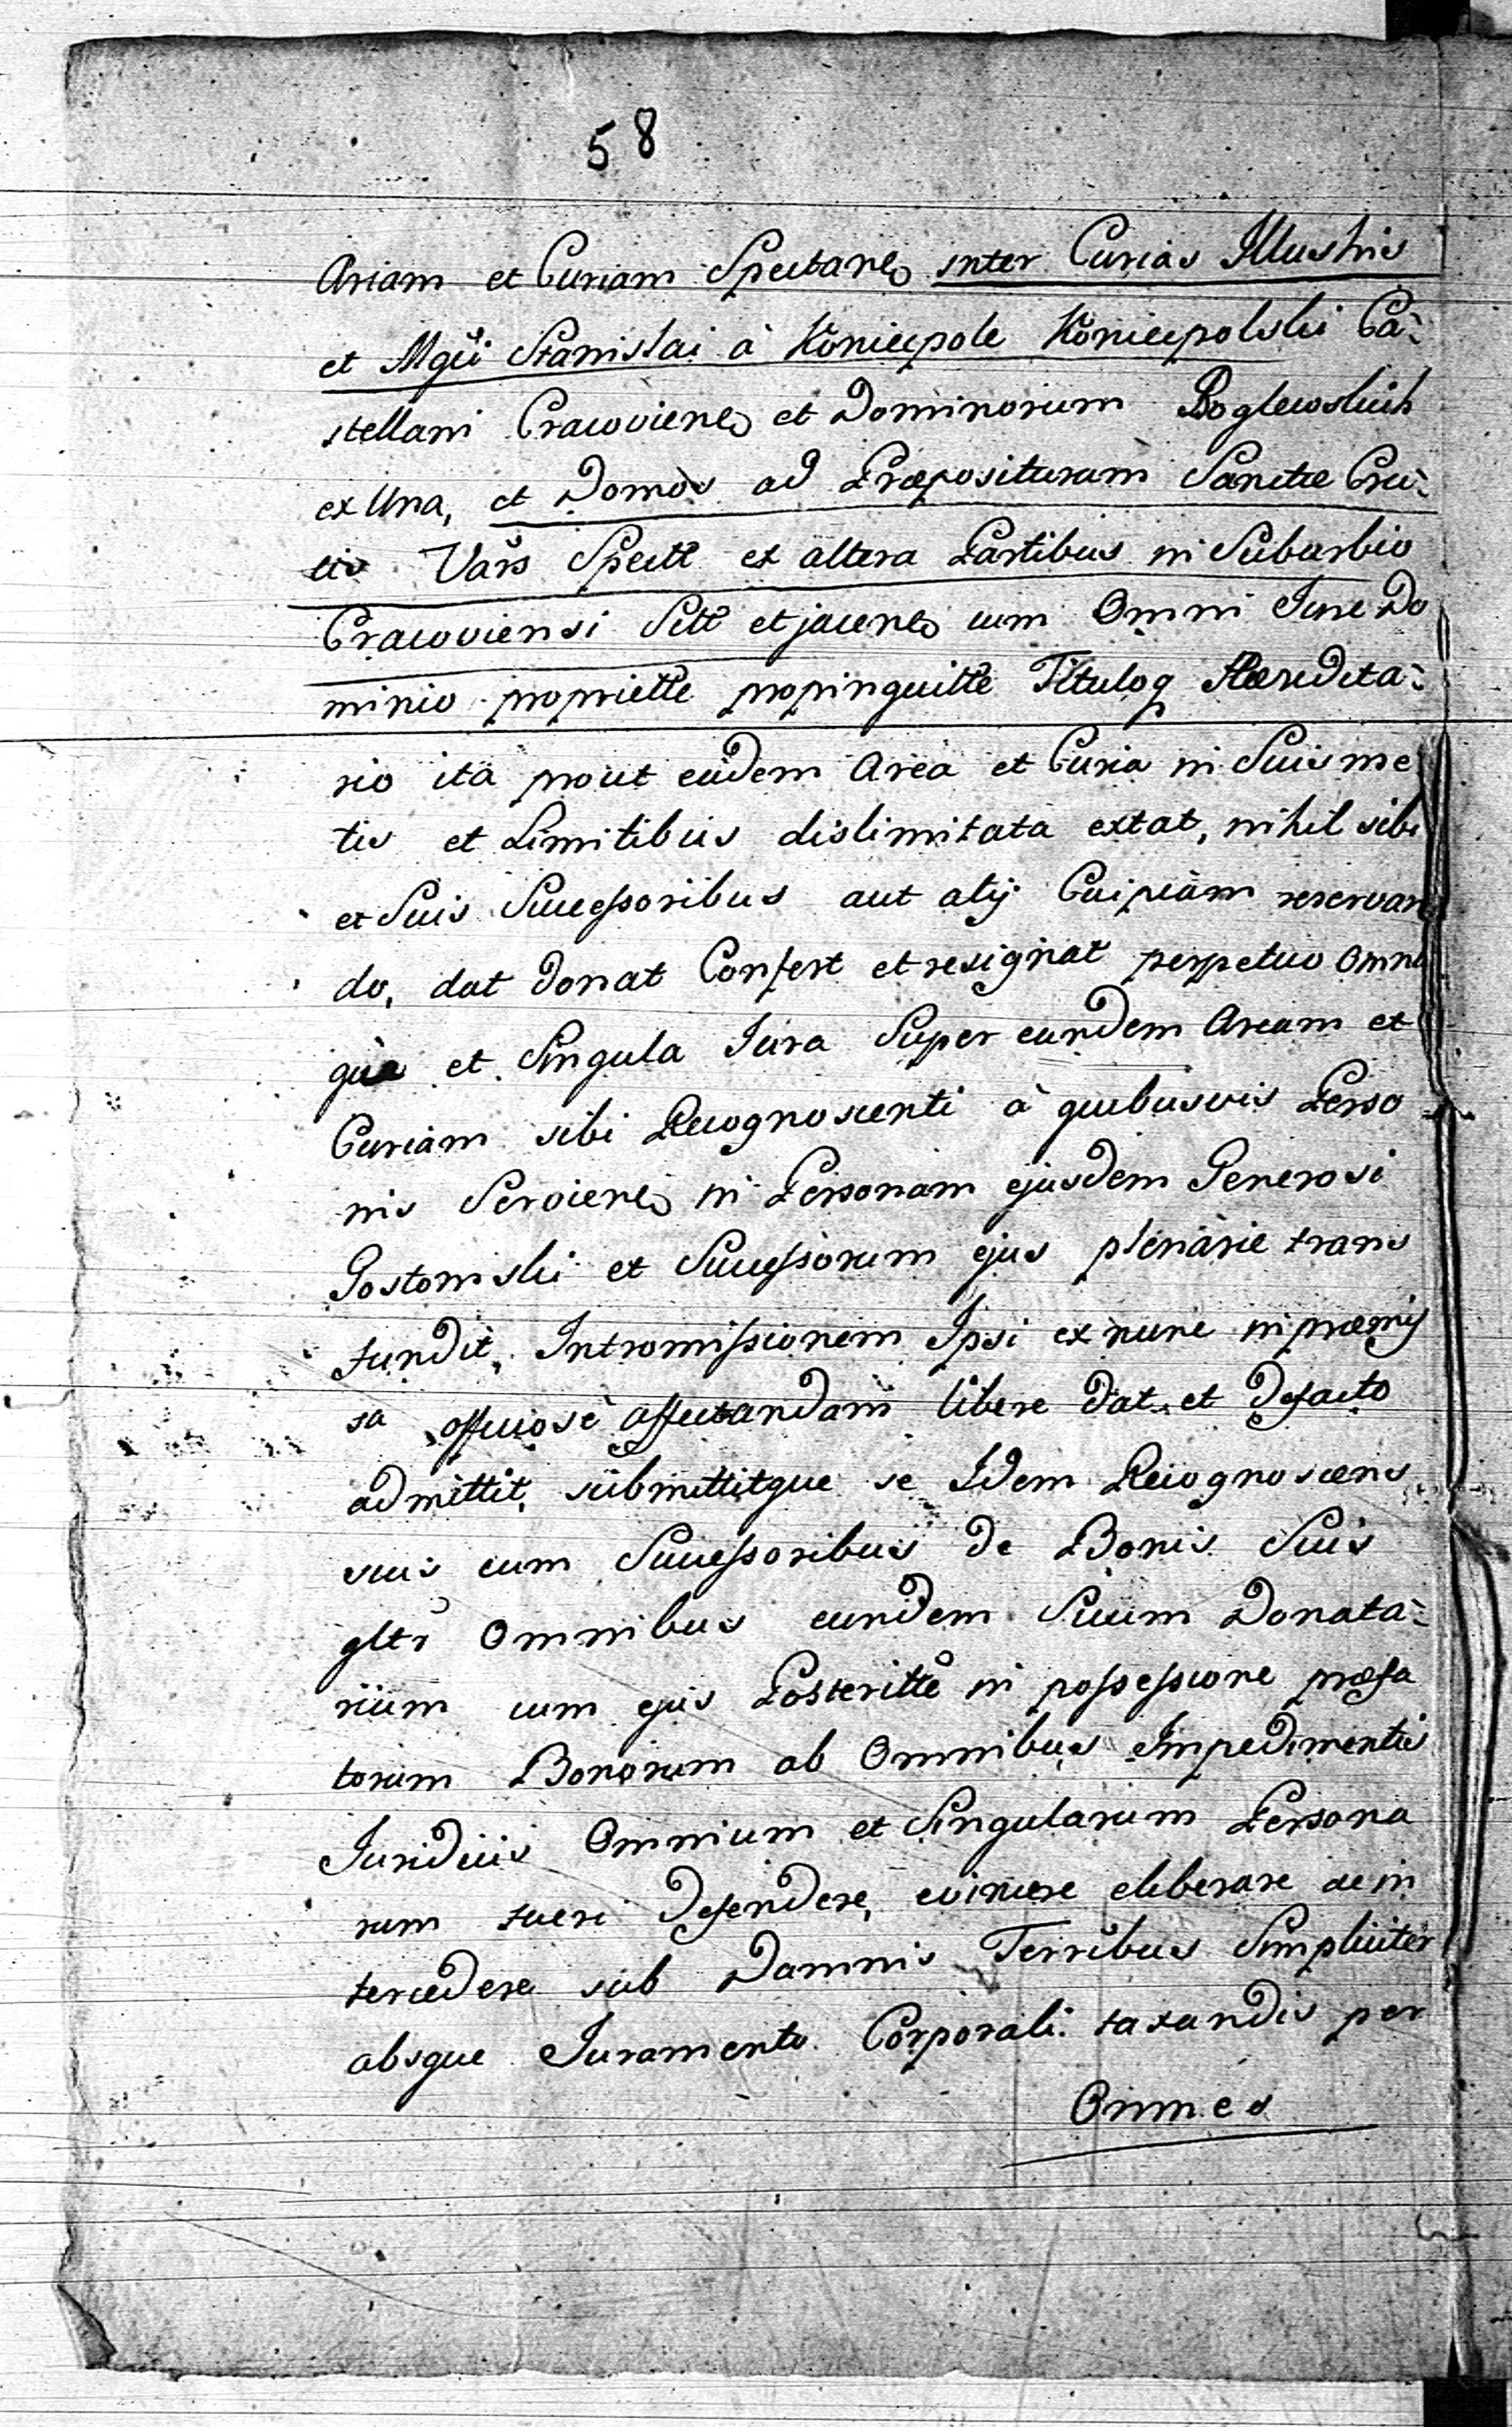 58
Ariam et Curiam Spectan̄ inter Curias Illustris
et Mgči Stanislai à Koniecpole Koniecpolski Ca-
stellani Cracovien̄ et Dominorum Boglewskich
ex Una, et Domos ad Præposituram Sanctæ Cru-
cis Vars̄ Spectt̄ ex altera Partibus in Suburbio
Cracoviensi Sitt̄ et jacen̄ cum Omni Jure Do
minio propriett̄e propinquitt̄e Tituloq Hæredita-
rio ita prout eadem Area et Curia in Suis me
tis et Limitibus dislimitata extat, nihil sibi
et Suis Successoribus aut alij Cuipiam reservan
do, dat donat Confert et resignat perpetuo Omni
que et Singula Jura Super eandem Aream et
Curiam sibi Recognoscenti à quibusvis Perso
nis Servien̄ in Personam ejusdem Generosi
Gostomski et Successorum ejus plenarie trans
fundit, Intromissionem Ipsi ex nunc in præmis
sa officiosè affectandam libere dat et defacto
admittit, submittitque se Idem Recognoscens
suis cum Successoribus de Bonis Suis
gltr̄ Omnibus eundem Suum Donata-
rium cum ejus Posteritt̄e in possessione præfa
torum Bonorum ab Omnibus Impedimentis
Juridicis Omnium et Singularum Persona
rum tueri defendere, evincere eliberare ac in
tercedere sub Damnis Terr̄ibus Simpliciter
absque Juramento Corporali taxandis per
Omnes